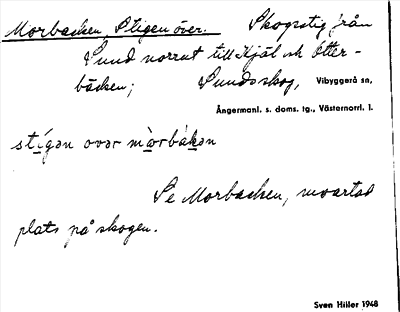 Morbacken, Stigen över. Skogsstig från
Sund norrut till Kjäl och Otter-
bäcken; Sunds skog, Vibyggerå sn,
Ångermanl. s. doms. tg., Västernorrl. l.
stígən ovər mòrbàkən
Se Morbacken,
plats på skogen.
Sven Hiller 1948